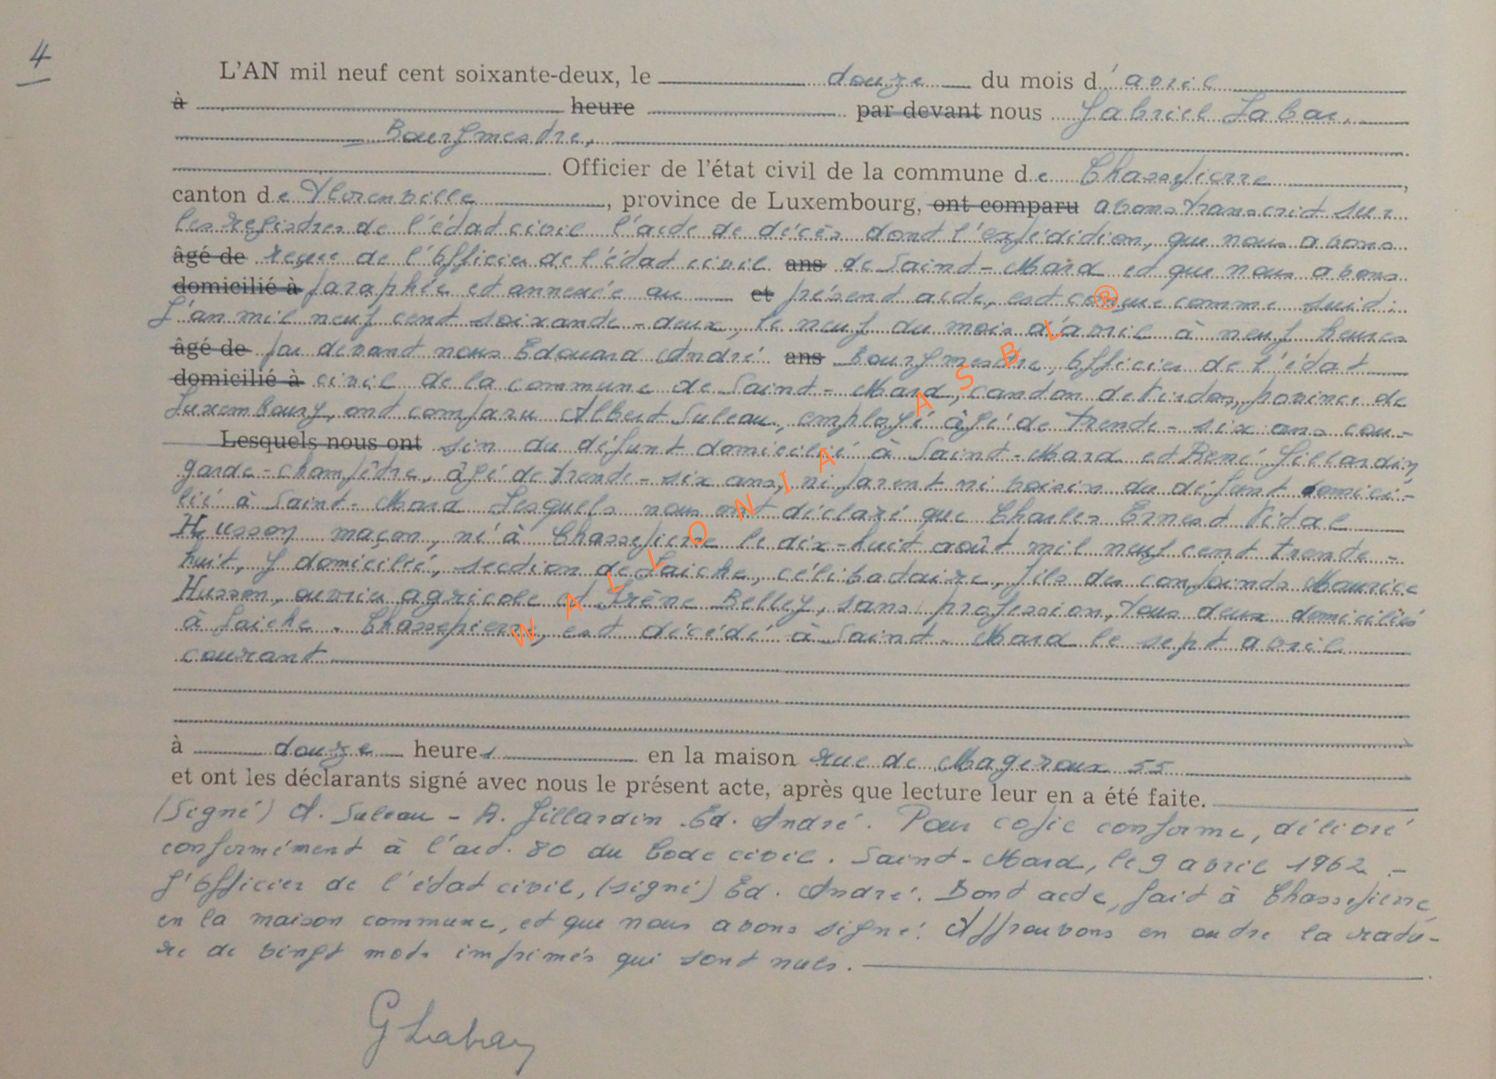 4
L'AN mil neuf cent soixante-deux, le douze du mois d'avril
à heure par devant nous Gabriel Labar,
Bourgmestre,
Officier de l'état civil de la commune de Chassepierre,
canton de Florenville, province de Luxembourg, ont comparu avons transcrit sur
les registres de l'état civil l'acte de décès dont l'expédition, que nous avons
âgé de reçue de l'Officier de l'état civil ans de Saint-Mard et que nous avons
domicilié à paraphée et annexée au et présent acte, est conçue comme suit :
L'an mil neuf cent soixante-deux, le neuf du mois d'avril à neuf heures
âgé de par devant nous Edouard André ans Bourgmestre, Officier de l'état
domicilié à civil de la commune de Saint-Mard, canton de Virton, province de
Luxembourg, ont comparu Albert Suleau, employé âgé de trente-six ans cou-
Lesquels nous ont sin du défunt domicilié à Saint-Mard et René Gillardin
garde-champêtre, âgé de trente-six ans, ni parent ni voisin du défunt domici-
lié à Saint-Mard Lesquels nous ont déclaré que Charles Ernest Vital
Husson maçon, né à Chassepierre le dix-huit août mil neuf cent trente-
huit, y domicilié, section de Laiche, célibataire, fils des conjoints Maurice
Husson, ouvrier agricole et Irène Belley, sans profession, tous deux domiciliés
à Laiche. Chassepierre, est décédé à Saint-Mard le sept avril
courant
à douze heures en la maison rue de Mageroux 55
et ont les déclarants signé avec nous le présent acte, après que lecture leur en a été faite.
(Signé) A. Suleau - R. Gillardin Ed. André. Pour copie conforme, délivré
conformément à l'art. 80 du Code civil. Saint-Mard, le 9 avril 1962. -
L'Officier de l'état civil, (signé) Ed. André. Dont acte, fait à Chassepierre,
en la maison commune, et que nous avons signé. Approuvons en outre la ratu-
re de vingt mots imprimés qui sont nuls.
G Labar
WALLONIA ASBL ®